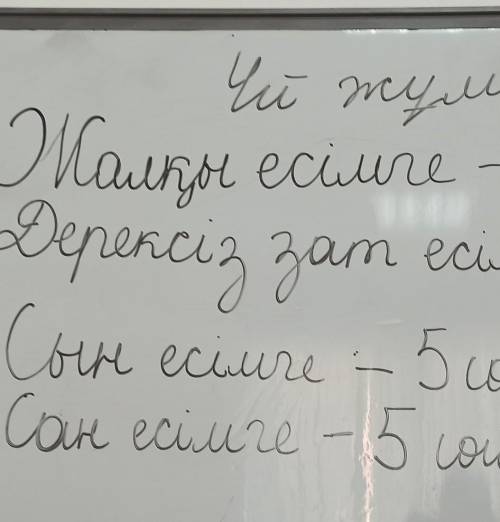 Үй жұм
Жалқы есімге –
Дерексіз зат есі
Сын есімге – 5 сө
Сан есімге – 5 сөй